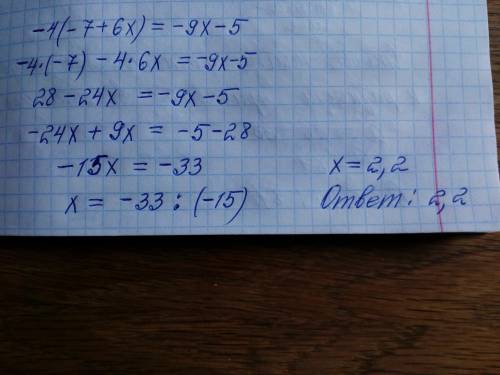 -4(-7+6x) = -9x-5
-4·(-7) - 4·6x = -9x-5
28-24x = -9x-5
-24x+9x = -5-28
-15x = -33
x = -33 : (-15)
x = 2,2
Ответ: 2,2